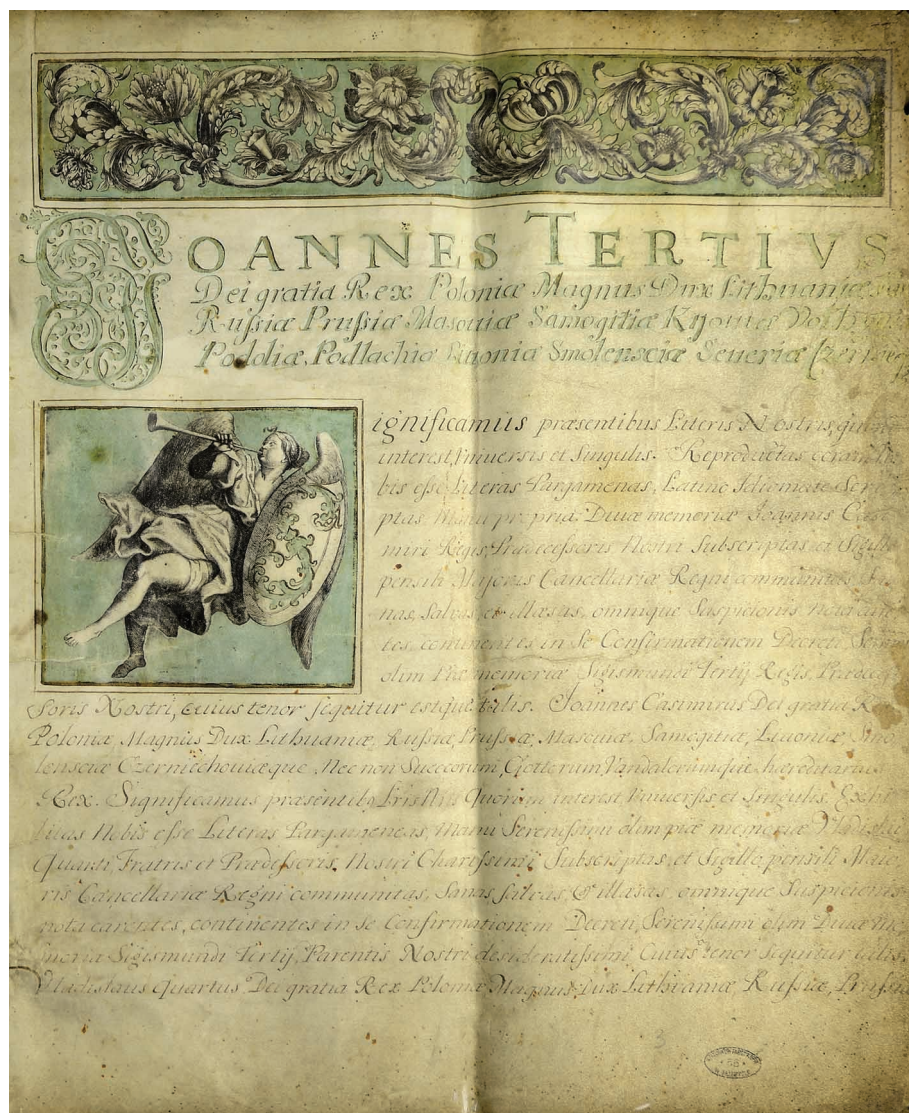 JOANNES TERTIVS
Dei gratia Rex Poloniæ Magnus Dux Lithuaniæ
Rußiæ Prußiæ Masouiæ Samogitiæ Kyouiæ
Podoliæ Podlachiæ Liuoniæ Smolensciæ Seueriæ
ignificamus præsentibus Literis Nostris, quorum
interest, Vniuersis et Singulis. Reproductas coram No
bis esse Literas Pargamenas, Latino Idiomate Scri
ptas, Manu propria Diuæ memoriæ Joannis Casi
miri Regis, Prædecessoris Nostri Subscriptas et Sigillo
pensili Majoris Cancellariæ Regni communitas Sa
nas, Saluas, et illæsas, omnique Suspicionis nota caren
tes, continentes in Se Confirmationem Decreti Sereni
olim Piæ memoriæ Sigismundi Tertij Regis, Prædeces
soris Nostri, cuius tenor sequitur estque talis. Joannes Casimirus Dei gratia Rex
Poloniæ, Magnus Dux Lithuaniæ, Rußiæ, Prußiæ, Masouiæ, Samogitiæ, Liuoniæ, Smo
lensciæ Czerniechouiæque, Nec non Suecorum, Gottorum, Vandalorumque hæreditarius
Rex. Significamus præsentib9 Quorum interest Vniuersis et Singulis. Exhi
bitas Nobis esse Literas Pargameneas, Manu Serenissimi olim piæ memoriæ Vladislai
Quarti, Fratris et Prædecessoris Nostri Charissimi Subscriptas, et Sigillo pensili Maio
ris Cancellariæ Regni communitas, Sanas saluas, & illæsas, omnique Suspicionis
nota carentes, continentes in se Confirmationem Decreti, Serenissimi olim Diuæ me
moriæ Sigismundi Tertij, Parentis Nostri desideratissimi Cuius tenor sequitur talis,
Vladislaus Quartus, Dei gratia Rex Poloniæ Magnus Dux Lithuaniæ, Rußiæ, Prußiæ
3